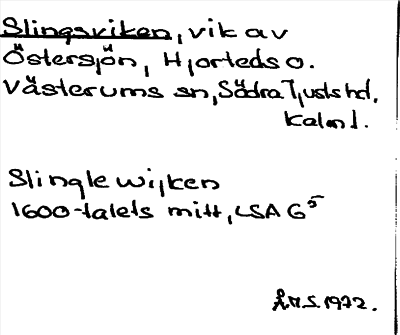 Slingsviken, vik av
Östersjön, Hjorteds o.
Västerums sn, Södra Tjusts hd,
Kalm l.
Slinglewijken
1600-talets mitt, LSA G5
Å.M.S. 1972.